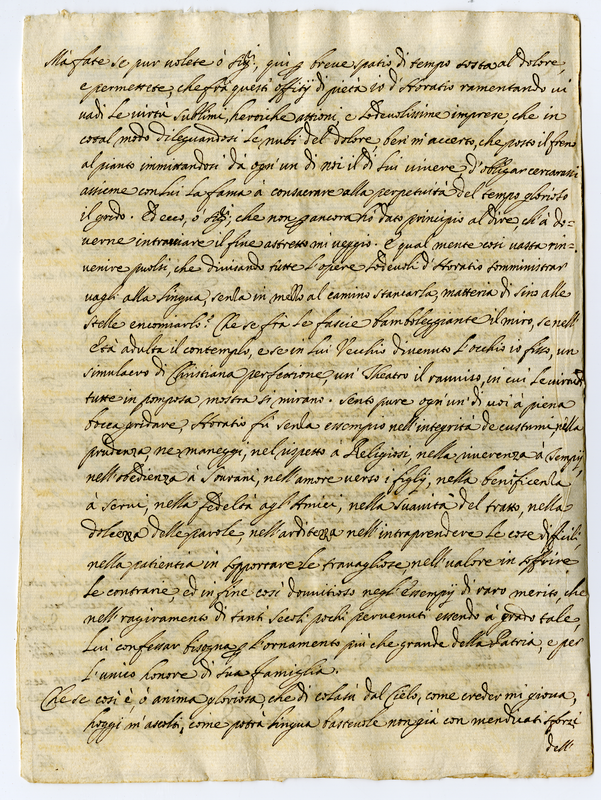 Mà fate se pur volete ò Sig.ri, qui p breve spatio di tempo sosta al dolore,
e permettete, che frà questi offitij di pietà io d'Horatio ramentando vi
vadi le virtù sublimi, heroiche attioni, e lodevolissime imprese che in
cotal modo dileguandosi le nubi del dolore ben m'accerto, che posto il freno
al pianto immirandosi dà ogn'un di noi il di lui vivere, d'obligar cercarassi
assieme con lui la fama à consacrare alla perpetuità del tempo glorioso
il grido. Ed ecco, ò Sig.ri, che non p ancora hò dato principio al dire, ch'à do=
verne intracciare il fine astretto mi veggio. E qual mente così vasta rin=
venire puossi, che divisando tutte l'opere lodevoli d'Horatio somministrar
vagli alla lingua, senza in mezzo al camino stancarla, matteria di sin alle
stelle encomiarlo? Che se frà le fascie bamboleggiante il miro, se nell'
Età adulta il contemplo, e se in lui Vecchio divenuto l'occhio io fisso, un
simulacro di Christiana perfettione, un' Theatro il raviso, in cui le virtudi
tutte in pomposa mostra si mirano. Sento pure ogn'un' di voi à piena
bocca gridare, Horatio fù senza essempio nell'integrità de custumi, nella
prudenza, ne maneggi, nel rispetto à Religiosi, nella riverenza à Tempij,
nell'obedienza à Sourani, nell'amore verso i figlij, nella beneficenza
à servi, nella fedeltà agl'Amici, nella suavità del tratto, nella
dolcezza delle parole, nell'arditezza nell'intraprendere le cose difficili,
nella patientia in sopportare le travagliose, nell'valore in soffrire
le contrarie, ed in fine così dovitioso negl'Essempij di raro merito, che
nell'ragiramento di tanti secoli pochi pervenuti essendo à grado tale,
lui confessar bisogna p l'ornamento più che grande della Patria, e per
l'unico honore di sua famiglia.
Che se così è, ò anima gloriosa, che di colasù dal Cielo, come creder mi giova,
hoggi m'ascolti, come potrà lingua bastevole non già con mendicati sforzi
dell'